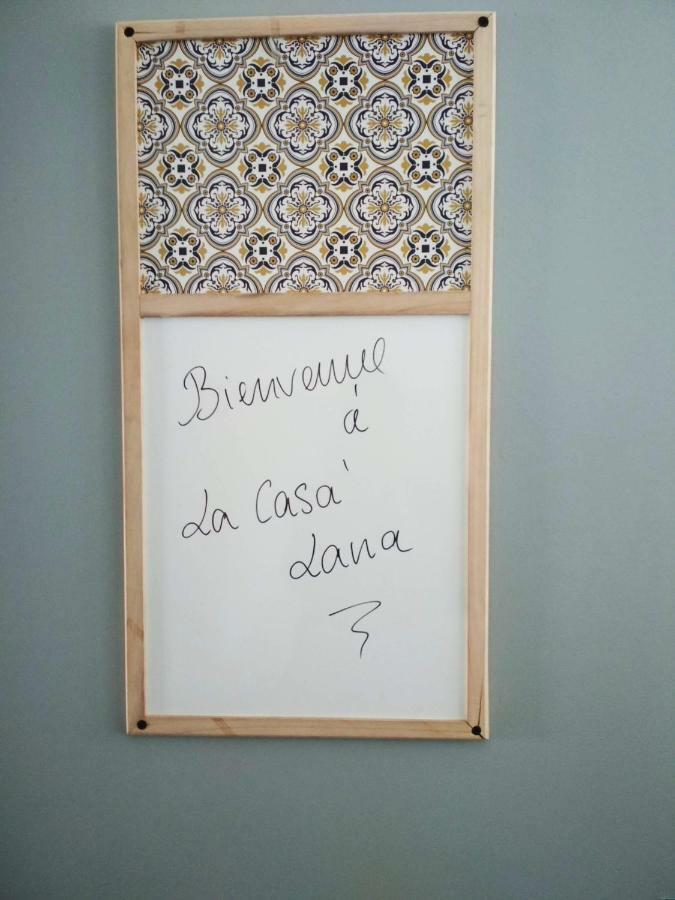 Bienvenue
á
La Casa'
Lana